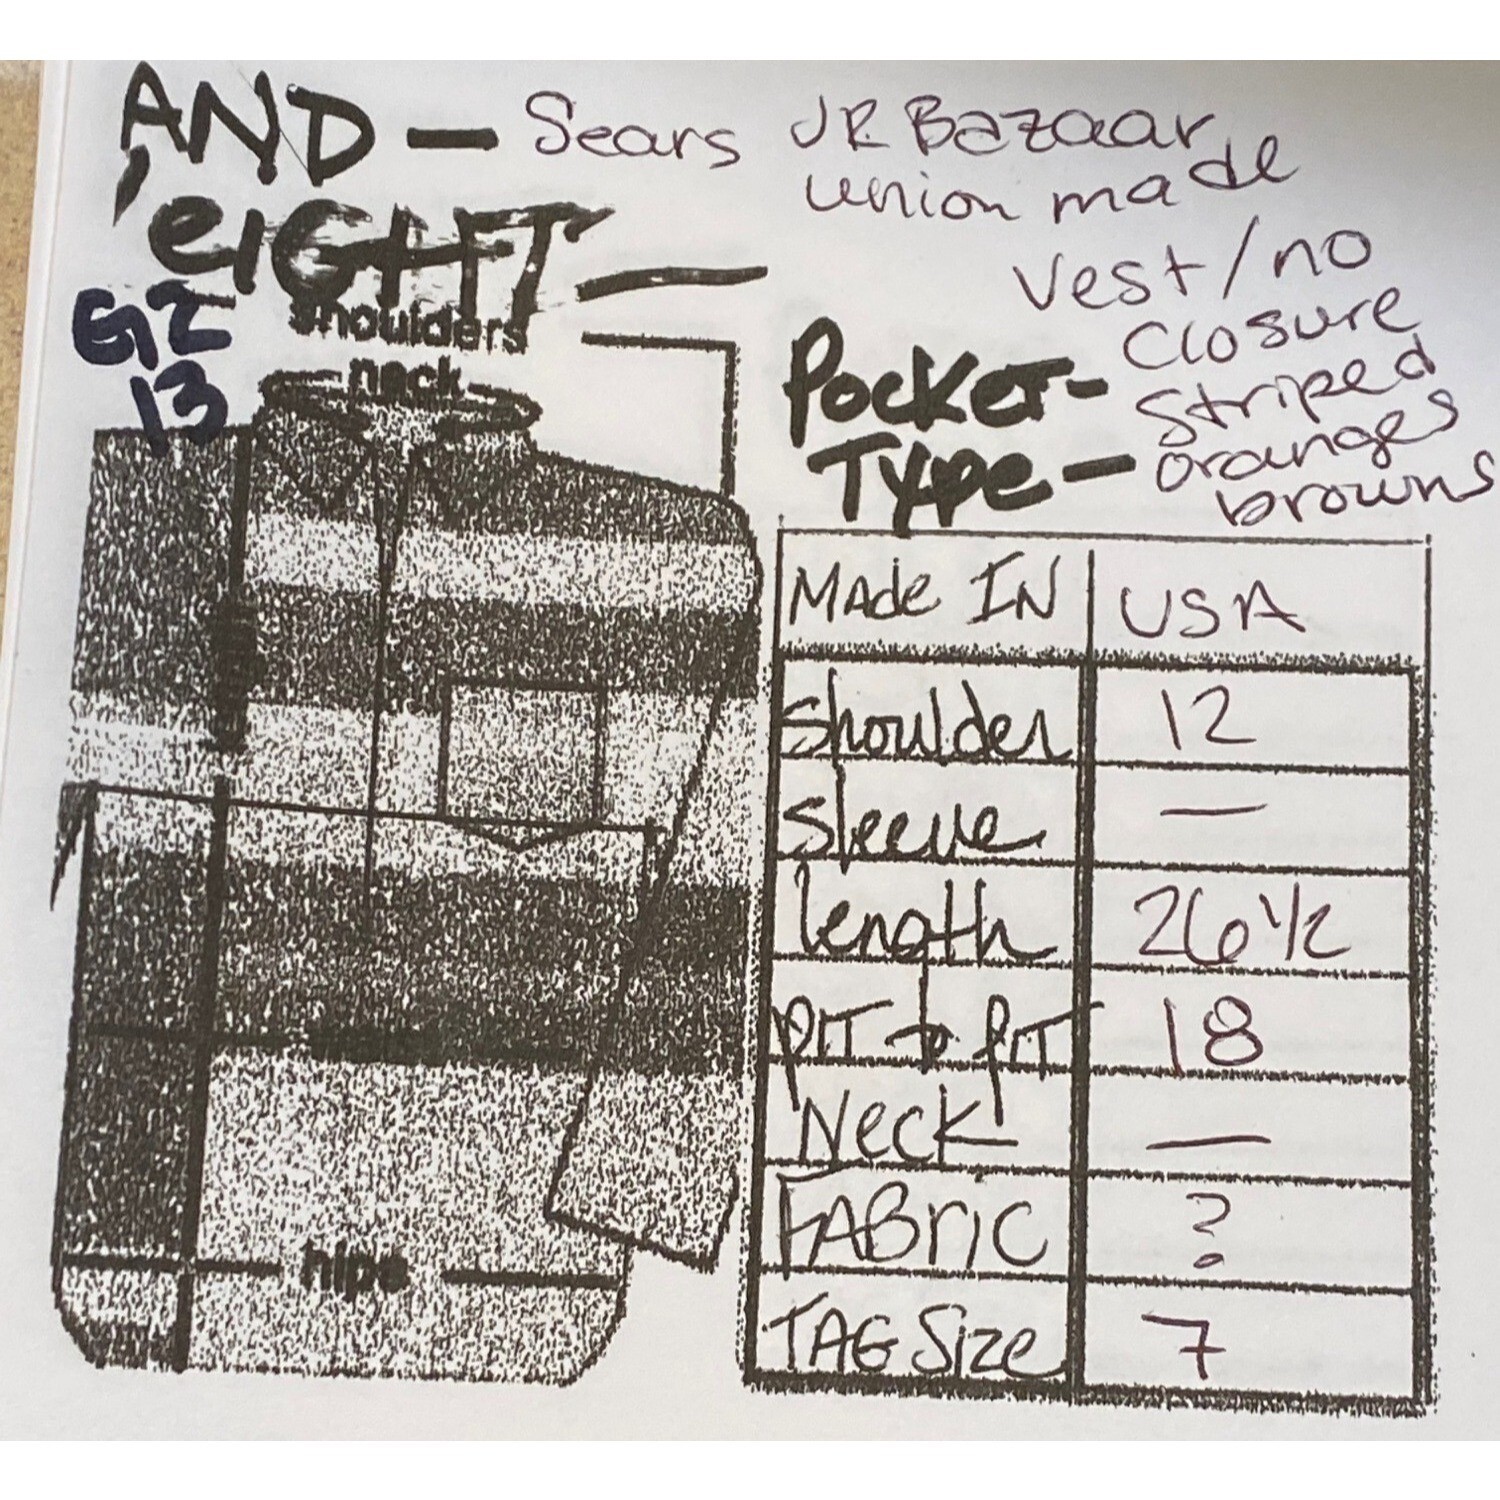 AND — Sears JR Bazaar
union made
'eIGHT —
Vest/no
Closure
Striped
oranges
browns
G2
13
shoulders
neck
Pocket-
Type —
Made IN USA
Shoulder 12
Sleeve —
length 26 1/2
PIT to PIT 18
Neck —
FABric ?
TAG Size 7
hips